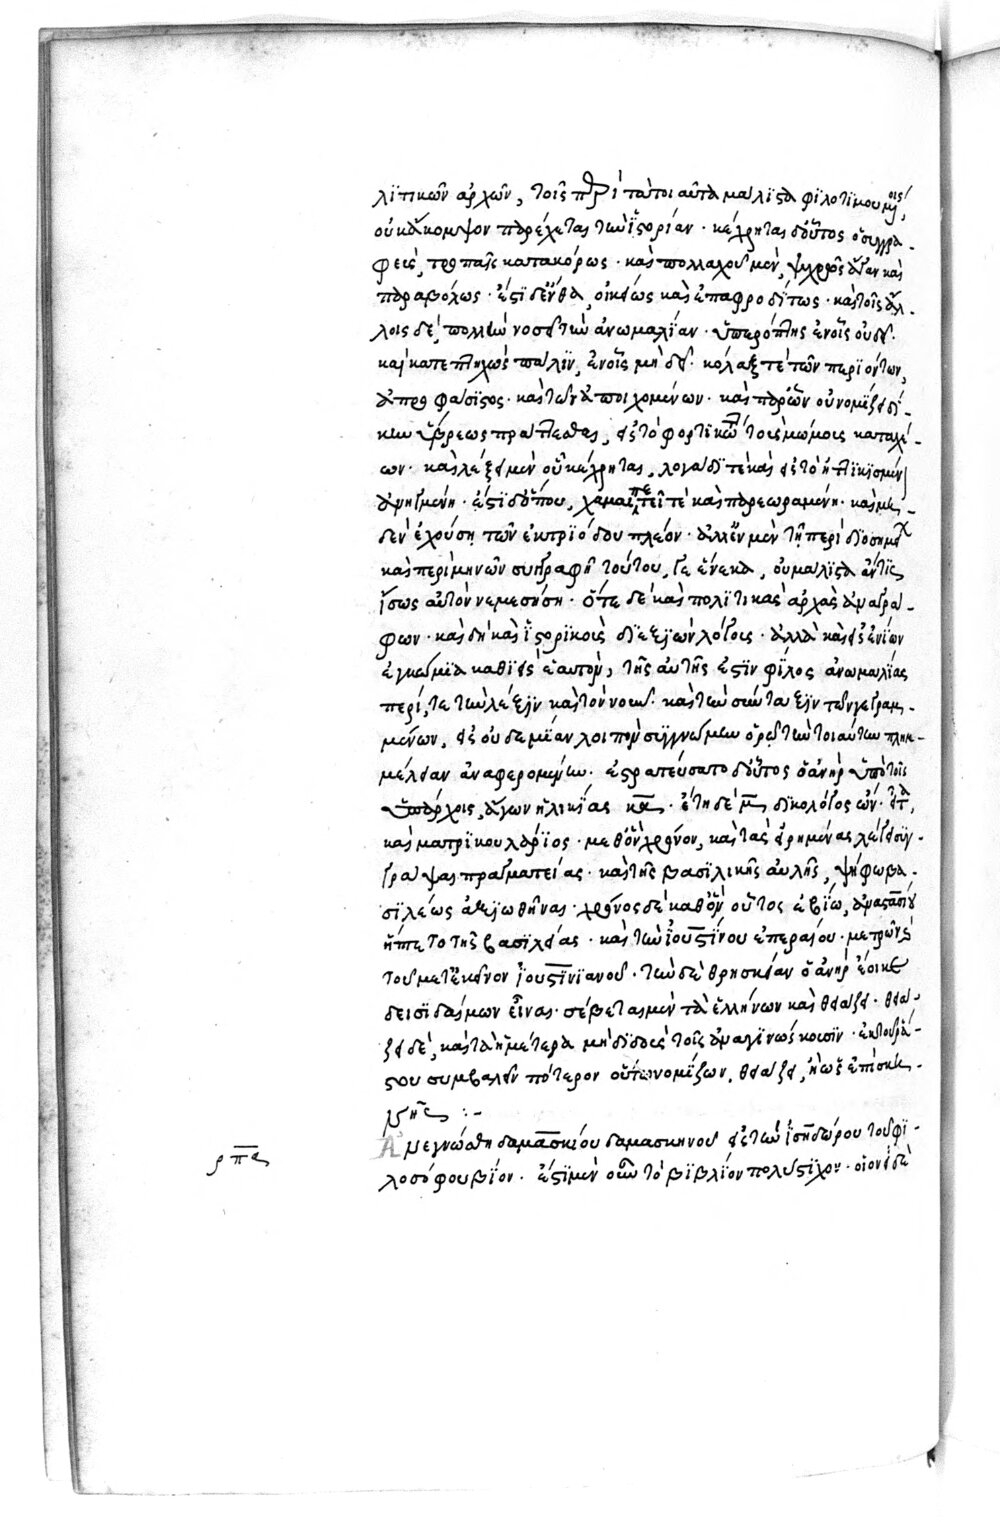 λιτικῶν ἀρχῶν, τοῖς περὶ τὰ τοιαῦτα μάλιστα φιλοτιμουμένοις,
οὐκ ἄκομψον παρέχεται τὴν ἱστορίαν · κέχρηται δ' οὗτος ὁ συγγρα-
φεὺς, τροπαῖς κατακόρως · καὶ πολλαχοῦ μὲν, ψυχρῶς ἄγαν καὶ
παραβόλως · ἔστι δ' ἔνθα, οἰκείως καὶ ἐπαφροδίτως · καὶ τοῖς ἄλ-
λοις δὲ, πολλὴν νοσεῖ τὴν ἀνωμαλίαν · ὑπερόπτης ἐν οἷς οὐ δεῖ ·
καὶ κατεπτηχὼς πάλιν, ἐν οἷς μὴ δεῖ · κόλαξ τε τῶν περιόντων,
ἀπροφάσιστος · καὶ τῶν ἀποιχομένων · καὶ παρ' ὧν οὐ νομίζει δί-
κην ὕβρεως πράττεσθαι, εἰς τὸ φορτικώτατον τοῖς μώμοις καταχέ-
ων · καὶ λέξει μὲν οὐ κέχρηται, λογάδι τε καὶ εἰς τὸ ἀττικίζειν
ἀνηγμένῃ · ἔστι δ' ὅπου, χαμαιπετεῖ τε καὶ παρεωραμένῃ · καὶ μη-
δὲν ἐχούσῃ τῶν ἐκ τριόδου πλέον · ἀλλ' ἐν μὲν τῇ περὶ διοσημειῶν
καὶ περὶ μηνῶν συγγραφῇ τούτου, γε ἕνεκα, οὐ μάλιστα ἄν τις
ἴσως αὐτὸν νεμεσήσῃ · ὅτε δὲ καὶ πολιτικὰς ἀρχὰς ἀναγρά-
φων · καὶ δὴ καὶ ἱστορικοῖς διεξιὼν λόγοις · ἀλλὰ καὶ εἰς ἐνίων
ἐγκώμια καθιεὶς ἑαυτὸν, τῆς αὐτῆς ἐστὶν φίλος ἀνωμαλίας
περί, τε τὴν λέξιν καὶ τὸν νοῦν · καὶ τὴν σύνταξιν τῶν γεγραμ-
μένων, εἰς οὐδεμίαν λοιπὸν συγγνώμην ὁρῶ τὴν τοιαύτην πλημ-
μέλειαν ἀναφερομένην · ἐστρατεύσατο δ' οὗτος ὁ ἀνὴρ ὑπὸ τοῖς
ὑπάρχοις, ἄγων ἡλικίας κα · ἔτη δὲ μ δικολόγος ὢν · εἶτα,
καὶ ματρικουλάριος · μεθ' ὃν χρόνον, καὶ τὰς εἰρημένας λέγει συγ-
γράψαι πραγματείας · καὶ τῆς βασιλικῆς αὐλῆς, ψήφῳ βα-
σιλέως ἀξιωθῆναι · χρόνος δὲ καθ' ὃν οὗτος ἐβίω, ἀναστασίου
ἥπτετο τῆς βασιλείας · καὶ τὴν ἰουστίνου ἐπεραίου · μετρῶν δὲ
τοῦ μετ' ἐκεῖνον ἰουστινιανοῦ · τὴν δὲ θρησκείαν ὁ ἀνὴρ ἔοικε
δεισιδαίμων εἶναι · σέβεται μὲν τὰ ἑλλήνων καὶ θειάζει · θειά-
ζει δὲ, καὶ τὰ ἡμέτερα μὴ διδοὺς τοῖς ἀναγινώσκουσιν · ἐκ τοῦ ῥᾴ-
στου συμβαλεῖν πότερον οὕτω νομίζων, θειάζει, ἢ ὡς ἐπὶ σκη-
νῆς :-
Ἀνεγνώσθη δαμασκίου δαμασκηνοῦ εἰς τὸν ἰσιδώρου τοῦ φι-
λοσόφου βίον · ἔστι μὲν οὖν τὸ βιβλίον πολύστιχον · οἷον εἰ δὲ
ρπα